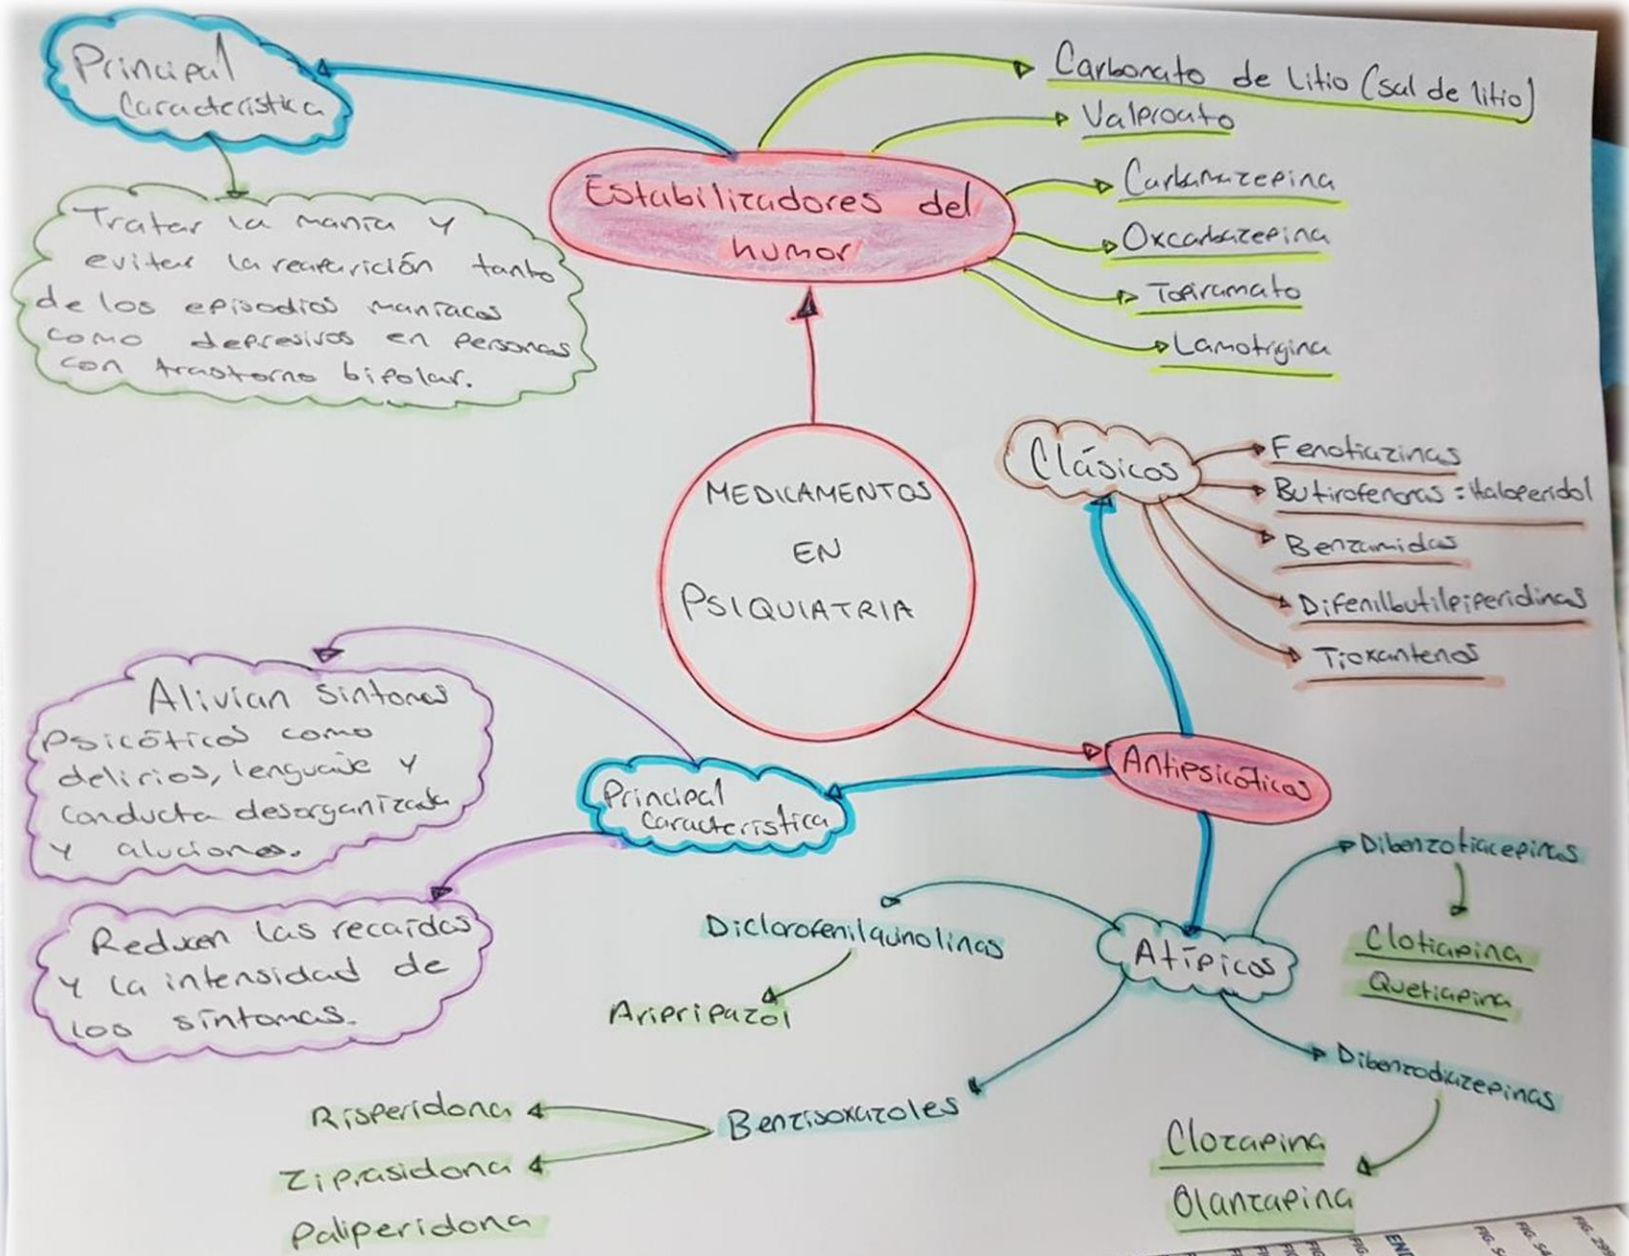 Principal
Característica
Tratar la manía y
evitar la reaparición tanto
de los episodios maníacos
como depresivos en personas
con trastorno bipolar.
Estabilizadores del
humor
Carbonato de Litio (sal de litio)
Valproato
Carbamazepina
Oxcarbazepina
Topiramato
Lamotrigina
MEDICAMENTOS
EN
PSIQUIATRIA
Clásicos
Fenotiazinas
Butirofenonas = Haloperidol
Benzamidas
Difenilbutilpiperidinas
Tioxantenos
Antipsicóticos
Principal
Característica
Alivian síntomas
psicóticos como
delirios, lenguaje y
conducta desorganizada
y aluciones.
Reducen las recaídas
y la intensidad de
los síntomas.
Atípicos
Dibenzotiacepinas
Clotiapina
Quetiapina
Diclorofenilquinolinas
Aripripazol
Dibenzodiazepinas
Clozapina
Olanzapina
Benzisoxazoles
Risperidona
Ziprasidona
Paliperidona
END
FIG.
FIG.
FIG.
FIG.